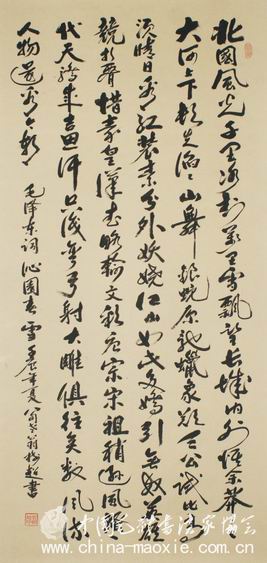 北國風光千里冰封萬里雪飄望長城內外惟余莽莽
大河上下頓失滔滔山舞銀蛇原馳蠟象欲与天公試比高
須晴日看紅裝素裹分外妖嬈江山如此多嬌引無數英雄
競折腰惜秦皇漢武略輸文彩唐宗宋祖稍遜風騷一
代天驕成吉思汗只識彎弓射大雕俱往矣數風流
人物還看今朝 毛澤東詞沁園春雪 壬辰年夏 書
中国毛体书法家协会
www.china-maoxie.com.cn